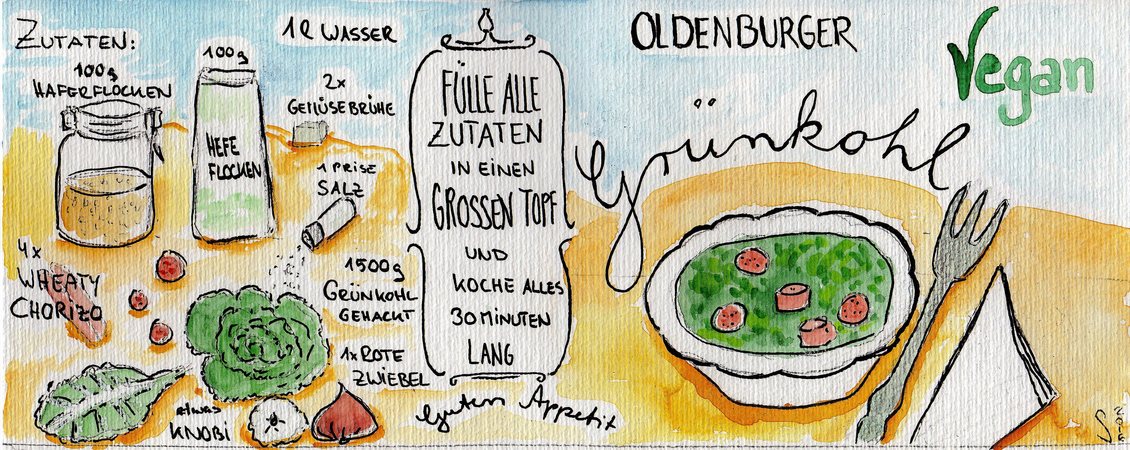 ZUTATEN:
100g
HAFERFLOCKEN
100g
HEFE
FLOCKEN
1l WASSER
2x
GEMÜSEBRÜHE
1 PRISE
SALZ
4x
WHEATY
CHORIZO
1500g
GRÜNKOHL
GEHACKT
1x ROTE
ZWIEBEL
etwas
KNOBI
FÜLLE ALLE
ZUTATEN
IN EINEN
GROSSEN TOPF
UND
KOCHE ALLES
30 MINUTEN
LANG
Guten Appetit
OLDENBURGER
Grünkohl
Vegan